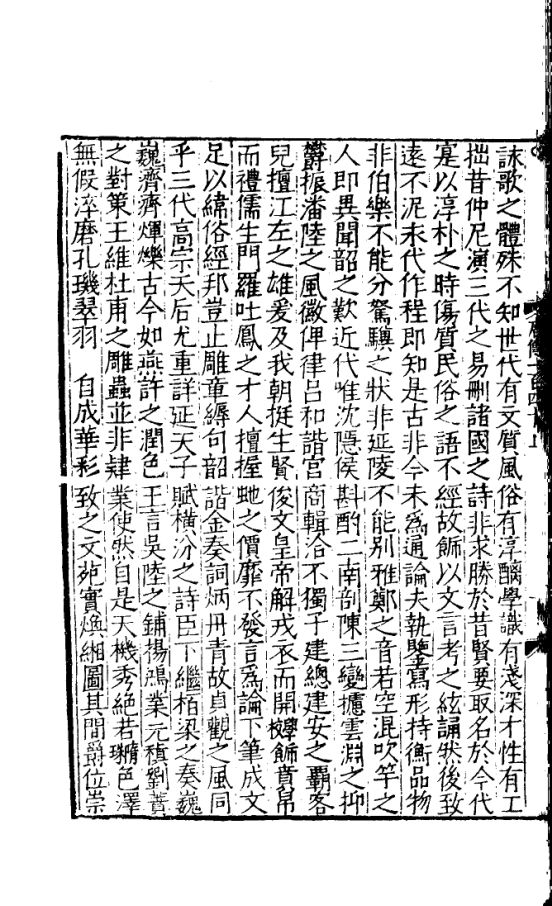 詠歌之體殊不知世代有文質風俗有淳醨學識有淺深才性有工
拙昔仲尼演三代之易刪諸國之詩非求勝於昔賢要取名於今代
寔以淳朴之時傷質民俗之語不經故飾以文言考之絃誦然後致
遠不泥永代作程即知是古非今未爲通論夫執鑒寫形持衡品物
非伯樂不能分駑驥之狀非延陵不能別雅鄭之音若空混吹竽之
人即異聞韶之歎近代唯沈隱侯斟酌二南剖陳三變攄雲淵之抑
鬱振潘陸之風徽俾律呂和諧宮商輯洽不獨子建總建安之霸客
兒擅江左之雄爰及我朝挺生賢俊文皇帝解戎衣而開學校飾賁帛
而禮儒生門羅吐鳳之才人擅握虵之價靡不發言爲論下筆成文
足以緯俗經邦豈止雕章縟句韻諧金奏詞炳丹青故貞觀之風同
乎三代高宗天后尤重詳延天子賦橫汾之詩臣下繼柏梁之奏巍
巍濟濟煇爍古今如燕許之潤色王言吳陸之鋪揚鴻業元稹劉蕡
之對策王維杜甫之雕蟲並非肄業使然自是天機秀絕若隋珠色澤
無假淬磨孔璣翠羽 自成華彩致之文苑實煥緗圖其間爵位崇